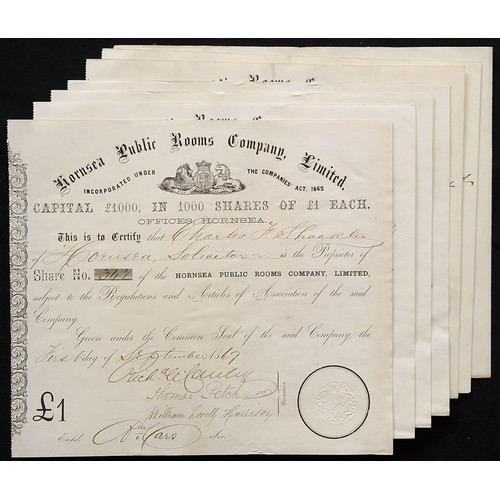 Hornsea Public Rooms Company, Limited.
INCORPORATED UNDER THE COMPANIES' ACT, 1862.
CAPITAL £1000, IN 1000 SHARES OF £1 EACH.
OFFICES, HORNSEA.
This is to Certify that Charles F. Shackles
of Hornsea, Solicitor is the Proprietor of
Share No. of the HORNSEA PUBLIC ROOMS COMPANY, LIMITED,
subject to the Regulations and Articles of Association of the said
Company.
Given under the Common Seal of the said Company, the
First day of September 1869
Thomas Petch
William Lovell Harrison
Directors.
£1
Entd. Sec.